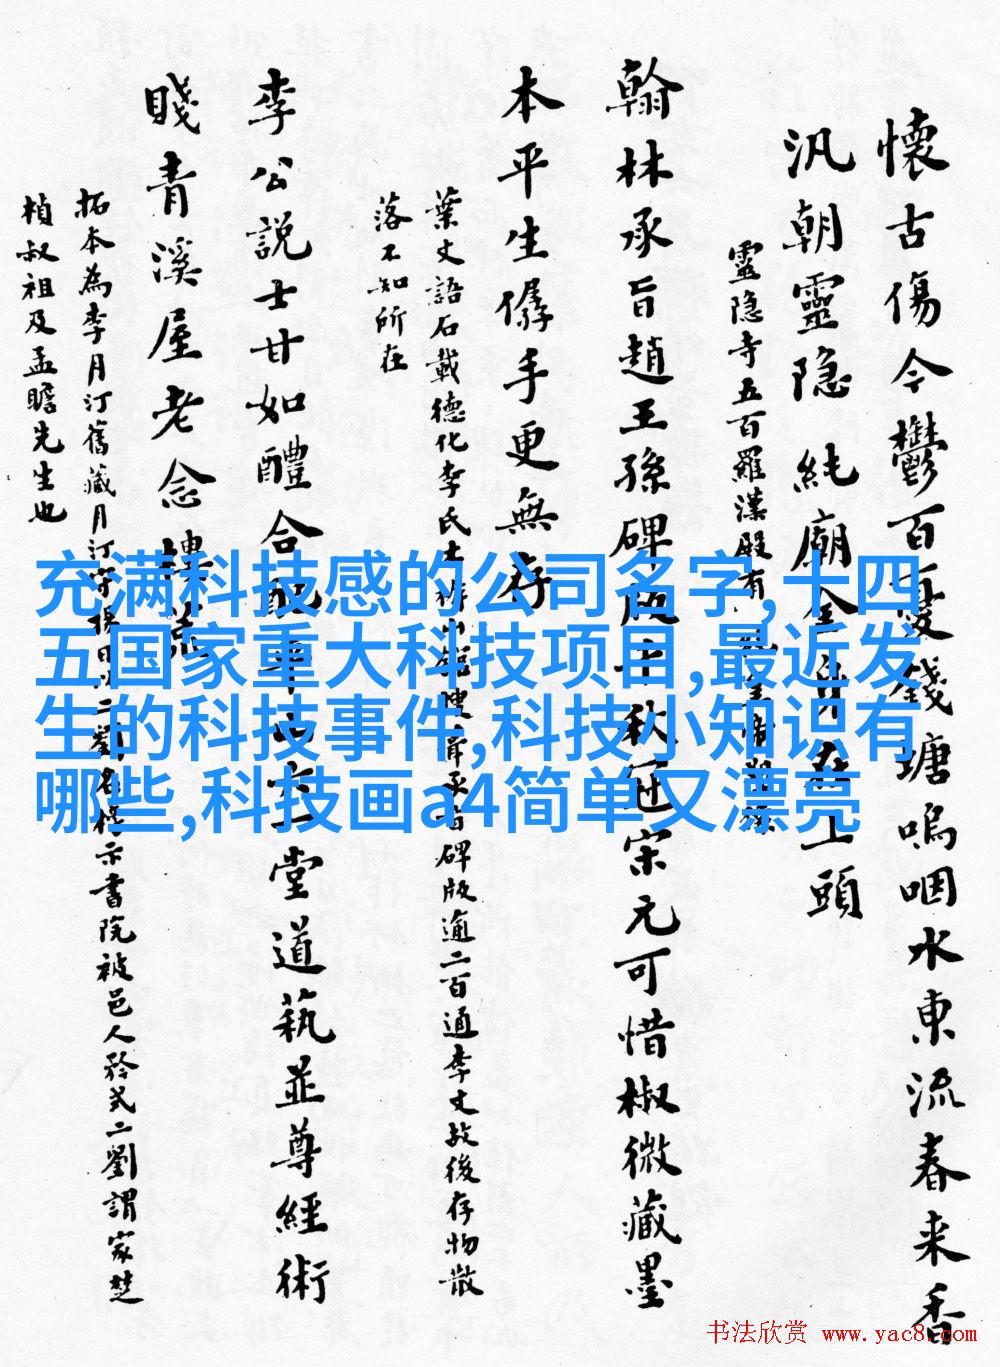 懷古傷今鬱百憂錢塘嗚咽水東流春来香
汎朝靈隐純廟金身上頭
靈隐寺五百羅漢殿有
翰林承旨趙王孫碑版千秋冠宋元可惜椒微藏墨
本平生僝手更無存
葉文語石載德化李氏碑版逾二百通李文故後存物散
落不知所在
李公說士甘如醴合配堂道藝並尊經術
賤青溪屋老念
拓本為李月汀舊藏月汀守揚日以二劉示書院被邑人矜式二劉謂家楚
楨叔祖及孟瞻先生也
充满科技感的公司名字,十四
五国家重大科技项目,最近发
生的科技事件,科技小知识有
哪些,科技画a4简单又漂亮
书法欣赏 www.yac8.com